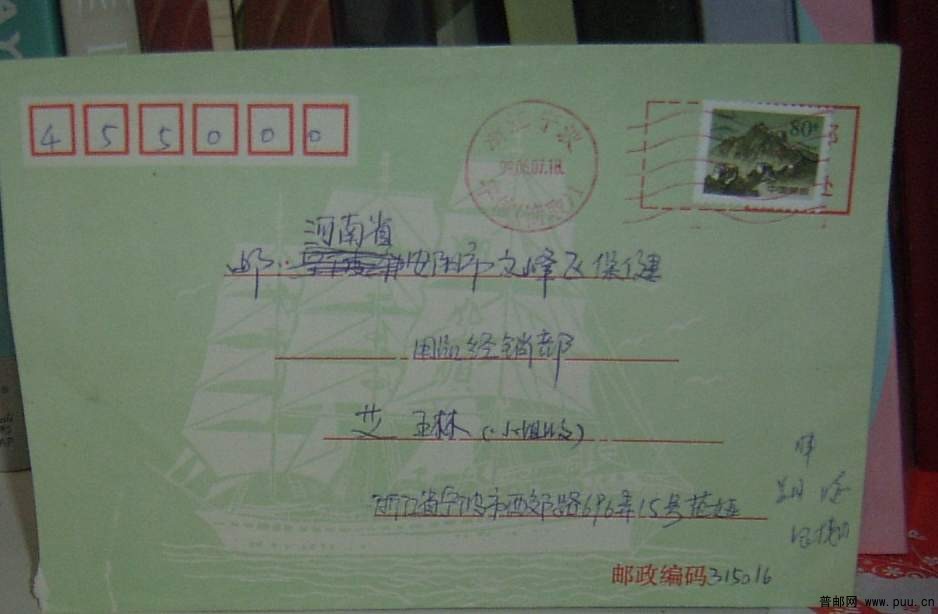 455000
浙江宁波
99.06.07.18
80分
中国邮政
河南省
邮: 安阳市文峰区保健
用品经销部
艾 玉林 (小姐收)
浙江省宁波市西郊路696弄15号
邮政编码315016
普邮网 www.puu.cn